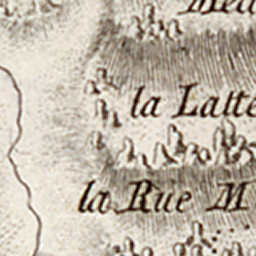 la Latte
la Rue M